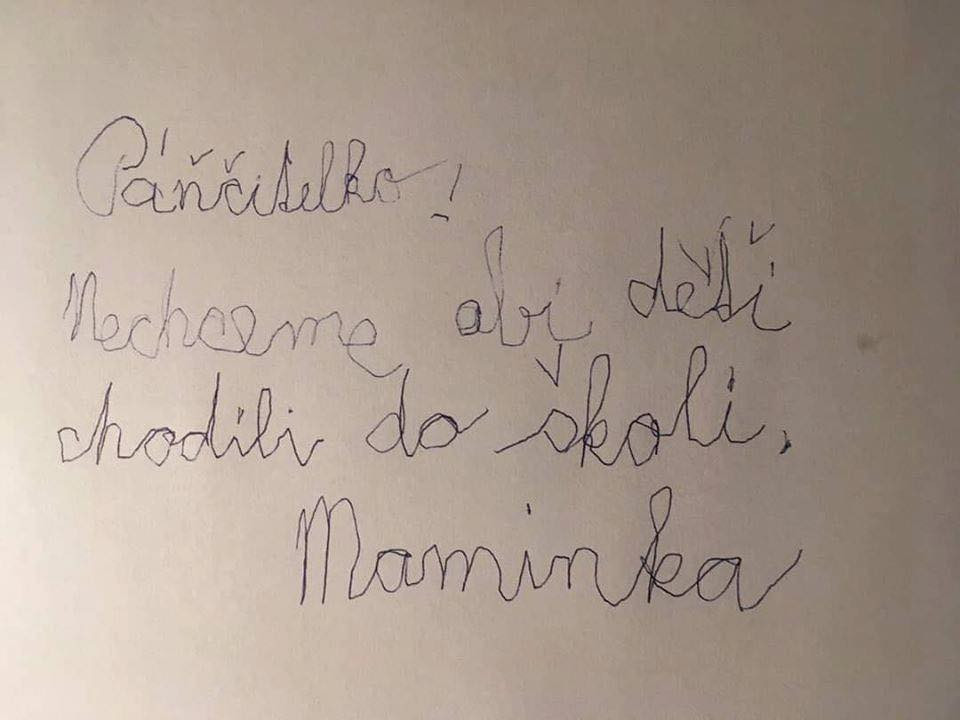 Páňčitelko!
Nechceme abi děťi
chodili do školi.
Maminka